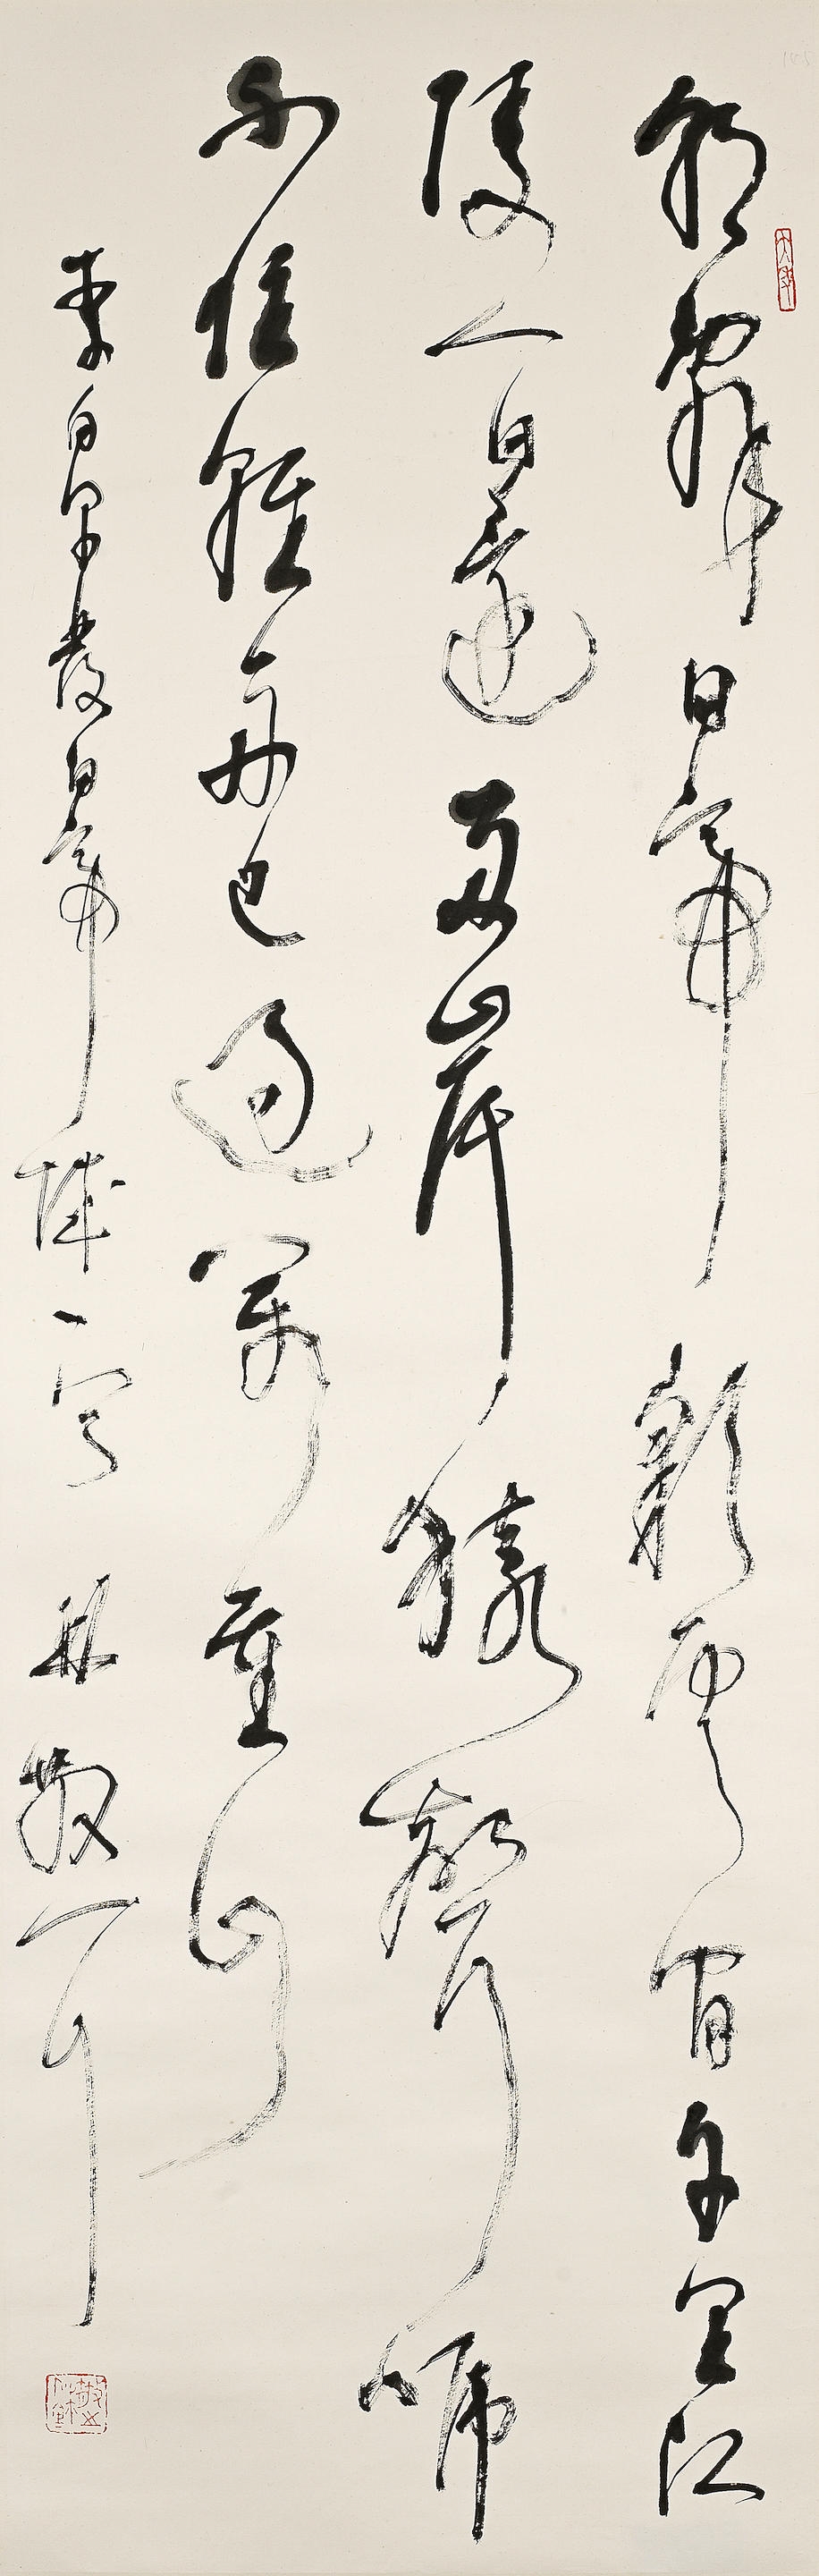 大年
朝辭白帝彩雲間千里江
陵一日還兩岸猿聲啼
不住輕舟已過萬重山
李白早發白帝城一 林散耳